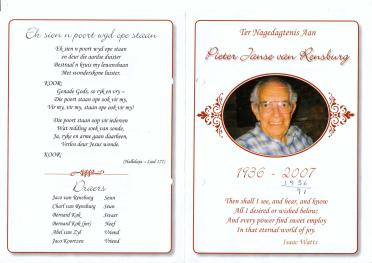 Ek sien 'n poort wyd ope staan
Ek sien 'n poort wyd ope staan
en deur die aardse duister
Bestraal n kruis my lewenslaan
Met wonderskone luister.
KOOR:
Genade Gods, so ryk en vry –
Die poort staan ope ook vir my,
Vir my, vir my, staan ope ook vir my!
Die poort staan oop vir iedereen
Wat redding soek van sonde,
Ja, ryke en arme gaan daarheen,
Verlos deur Jesus wonde.
KOOR:
(Halleluja – Lied 177)
Draers
Jaco van Rensburg Seun
Charl van Rensburg Seun
Bernard Kok Swaer
Bernard Kok (jnr) Neef
Abel van Zyl Vriend
Jaco Koortzen Vriend
Ter Nagedagtenis Aan
Pieter Janse van Rensburg
1936 - 2007
1936
71
Then shall I see, and hear, and know
All I desired or wished below;
And every power find sweet employ
In that eternal world of joy.
Isaac Watts